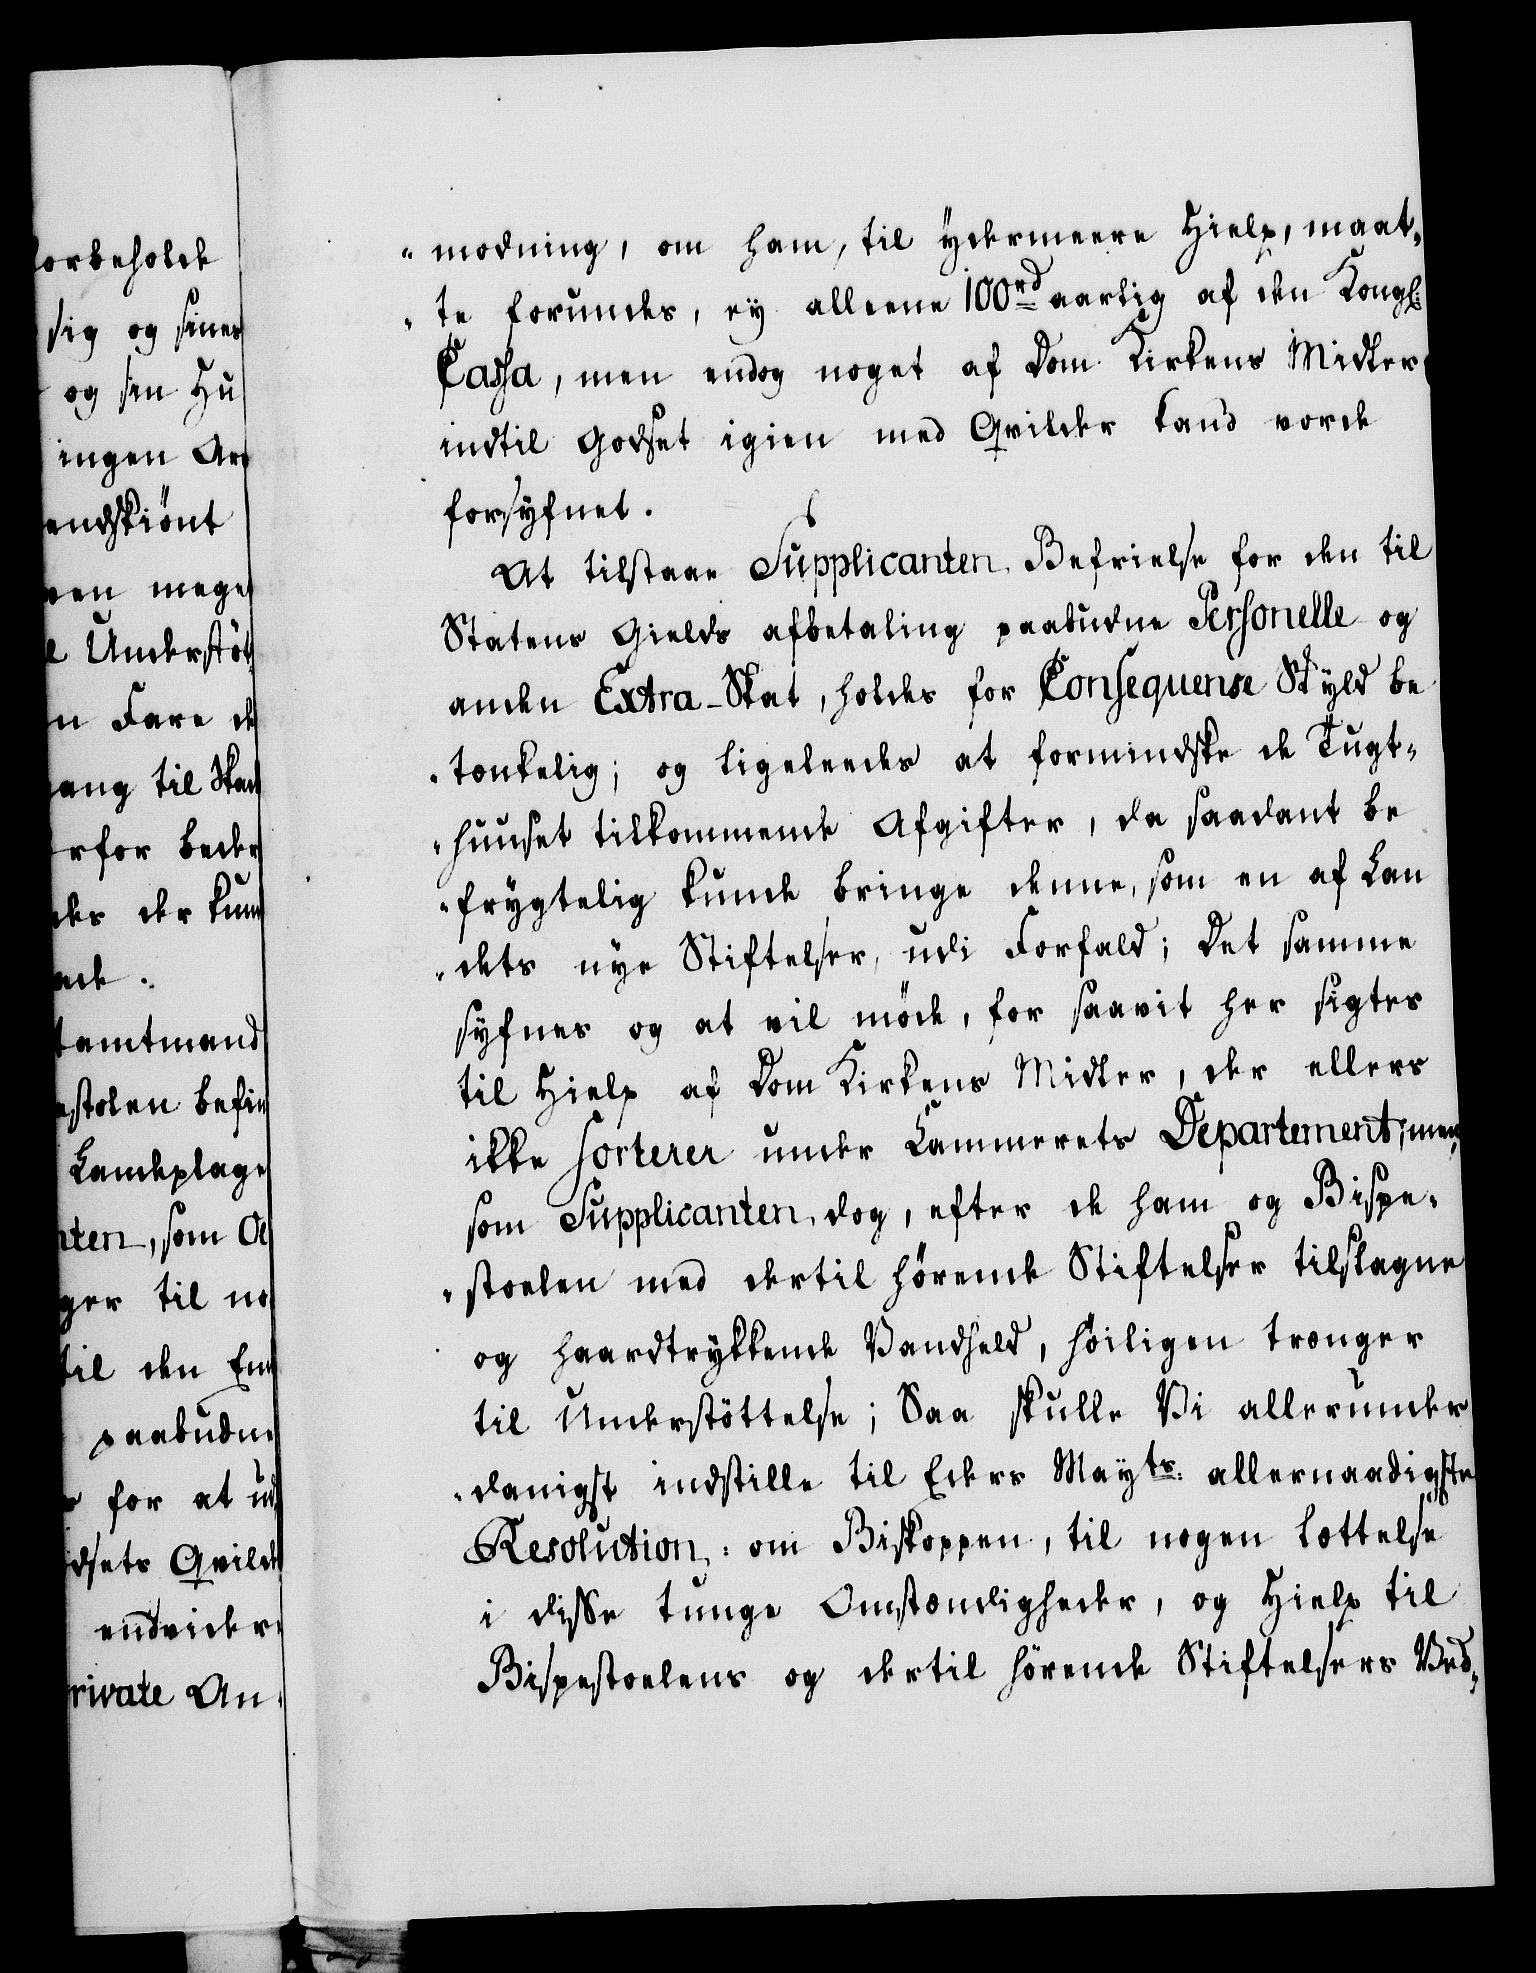 orbeholde
sig og sines
og sin Hu
ingen An
endskiönt
en mege
Understöt
n Fare de
ang til Skan
rfor bede
des der kun
ede.
tamtmand
estolen befin
Landeplage
nten, som Ol
ger til no
til den En
paabudne
for at ud
dsets Qvilde
endvidere
rivate An-
"modning, om ham, til ydermeere Hielp, maat-
"te forundes, ey alleene 100rd aarlig af den Kongl:
Cassa, men endog noget af Dom Kirkens Midler
indtil Godset igien med Qvilder kand vorde
forsÿfnet.
At tilstaae Supplicanten Befrielse for den til
Statens Gields afbetaling paabudne Personelle og
anden Extra-Skat, holdes for Consequense Skÿld be
"tænkelig; og ligeleedes at formindske de Tugt-
"huuset tilkommende Afgifter, da saadant be
"frÿgtelig kunde bringe denne, som en af Lan
"dets nÿe Stiftelser, udi Forfald; Det samme
sÿfnes og at vil möde, for saavit her sigtes
til Hielp af Dom Kirkens Midler, der ellers
ikke sorterer under Cammerets Departement; men,
som Supplicanten dog, efter de ham og Bispe-
"stoelen med dertil hørende Stiftelser tilslagne
og haardtrÿkkende Vandheld, höiligen trænger
til Understöttelse; Saa skulle Vi allerunder
"danigst indstille til Eders Maÿts: allernaadigste
Resolution: om Biskoppen, til nogen Lættelse
i disse tunge Omstændigheder, og Hielp til
Bispestoelens og dertil hörende Stiftelsers Ved-